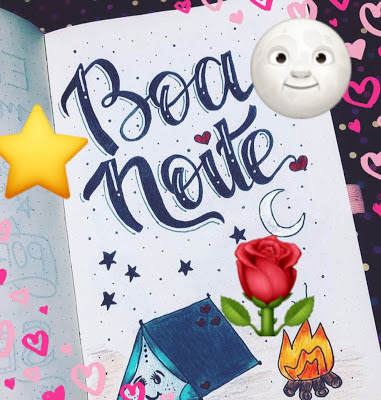 Boa
Noite